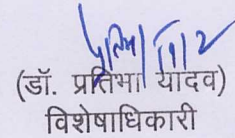 (डॉ. प्रतिभा यादव)
विशेषाधिकारी